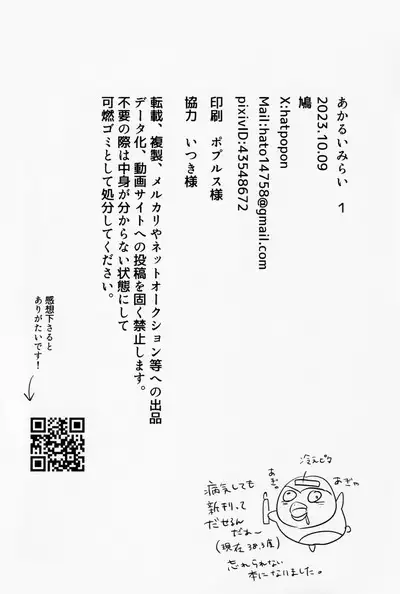 あかるいみらい 1
2023.10.09
鳩
X:hatpopon
Mail:hato14758@gmail.com
pixivID:43548672
印刷 ポプルス様
協力 いつき様
転載、複製、メルカリやネットオークション等への出品
データ化、動画サイトへの投稿を固く禁止します。
不要の際は中身が分からない状態にして
可燃ゴミとして処分してください。
感想下さると
ありがたいです!
冷えピタ
あぎゃ
あぎゃ
病気しても
新刊って
だせるん
だぁ〜
(現在38.3度)
忘れられない
本になりました。